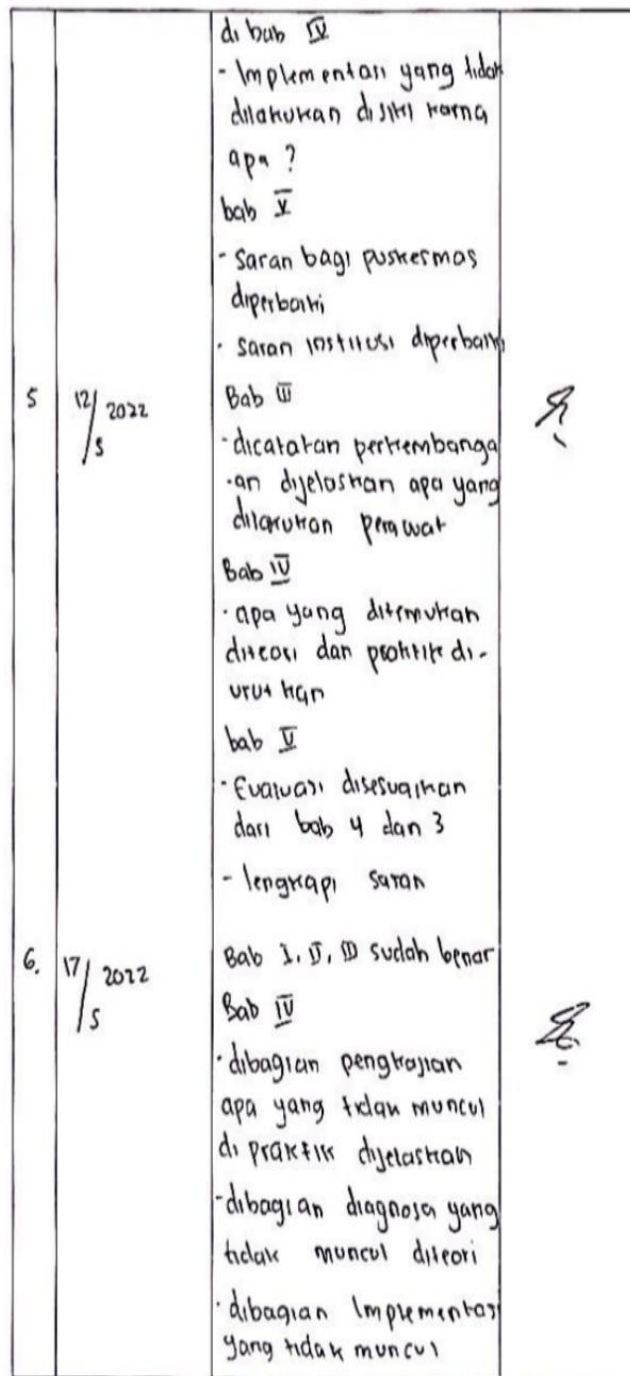 di bab IV
- Implementasi yang tidak
dilakukan disini karna
apa ?
bab V
- Saran bagi puskesmas
diperbaiki
- Saran institusi diperbaiki
5 12/5 2022 Bab III
- dicatatan perkembanga
-an dijelaskan apa yang
dilakukan perawat
Bab IV
- apa yang ditemukan
diteori dan praktik di-
urutkan
bab V
- Evaluasi disesuaikan
dari bab 4 dan 3
- lengkapi saran
6. 17/5 2022 Bab I, II, III sudah benar
Bab IV
- dibagian pengkajian
apa yang tidak muncul
di praktik dijelaskan
- dibagian diagnosa yang
tidak muncul diteori
- dibagian Implementasi
yang tidak muncul